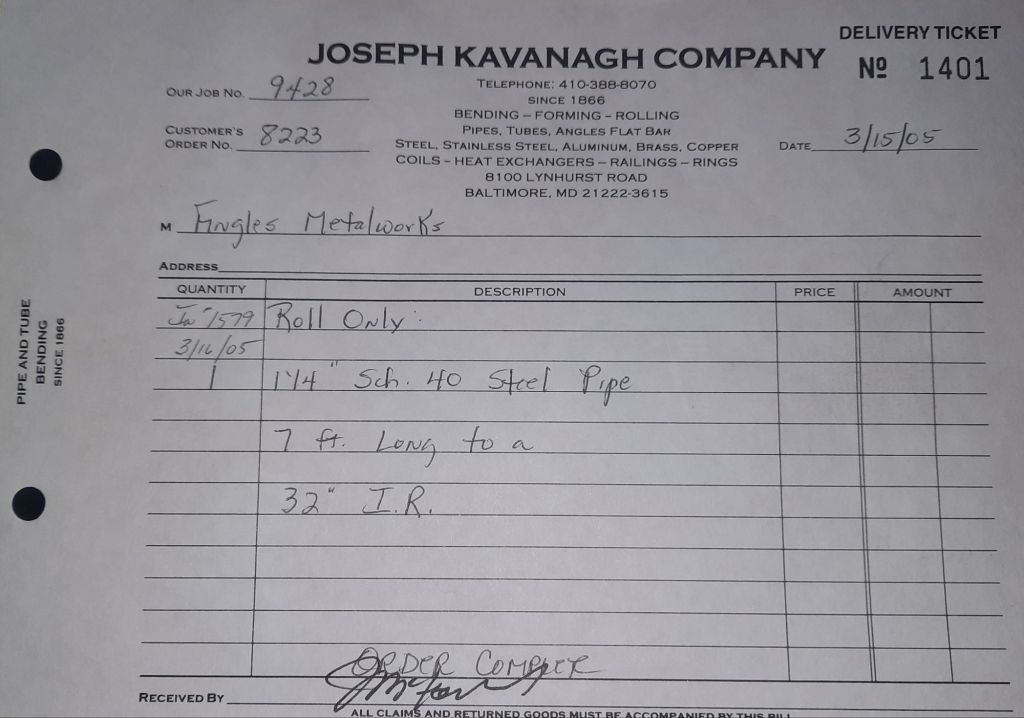 DELIVERY TICKET
JOSEPH KAVANAGH COMPANY
Nº 1401
OUR JOB NO. 9428
TELEPHONE: 410-388-8070
SINCE 1866
BENDING – FORMING – ROLLING
CUSTOMER'S
ORDER NO. 8223
PIPES, TUBES, ANGLES FLAT BAR
STEEL, STAINLESS STEEL, ALUMINUM, BRASS, COPPER
DATE 3/15/05
COILS – HEAT EXCHANGERS – RAILINGS – RINGS
8100 LYNHURST ROAD
BALTIMORE, MD 21222-3615
M Engles Metalworks
ADDRESS
QUANTITY DESCRIPTION PRICE AMOUNT
1579 Roll Only:
3/16/05
1 1 1/4" Sch. 40 Steel Pipe
7 ft. Long to a
32" I.R.
ORDER COMPLETE
RECEIVED BY
ALL CLAIMS AND RETURNED GOODS MUST BE ACCOMPANIED BY THIS BILL
PIPE AND TUBE
BENDING
SINCE 1866